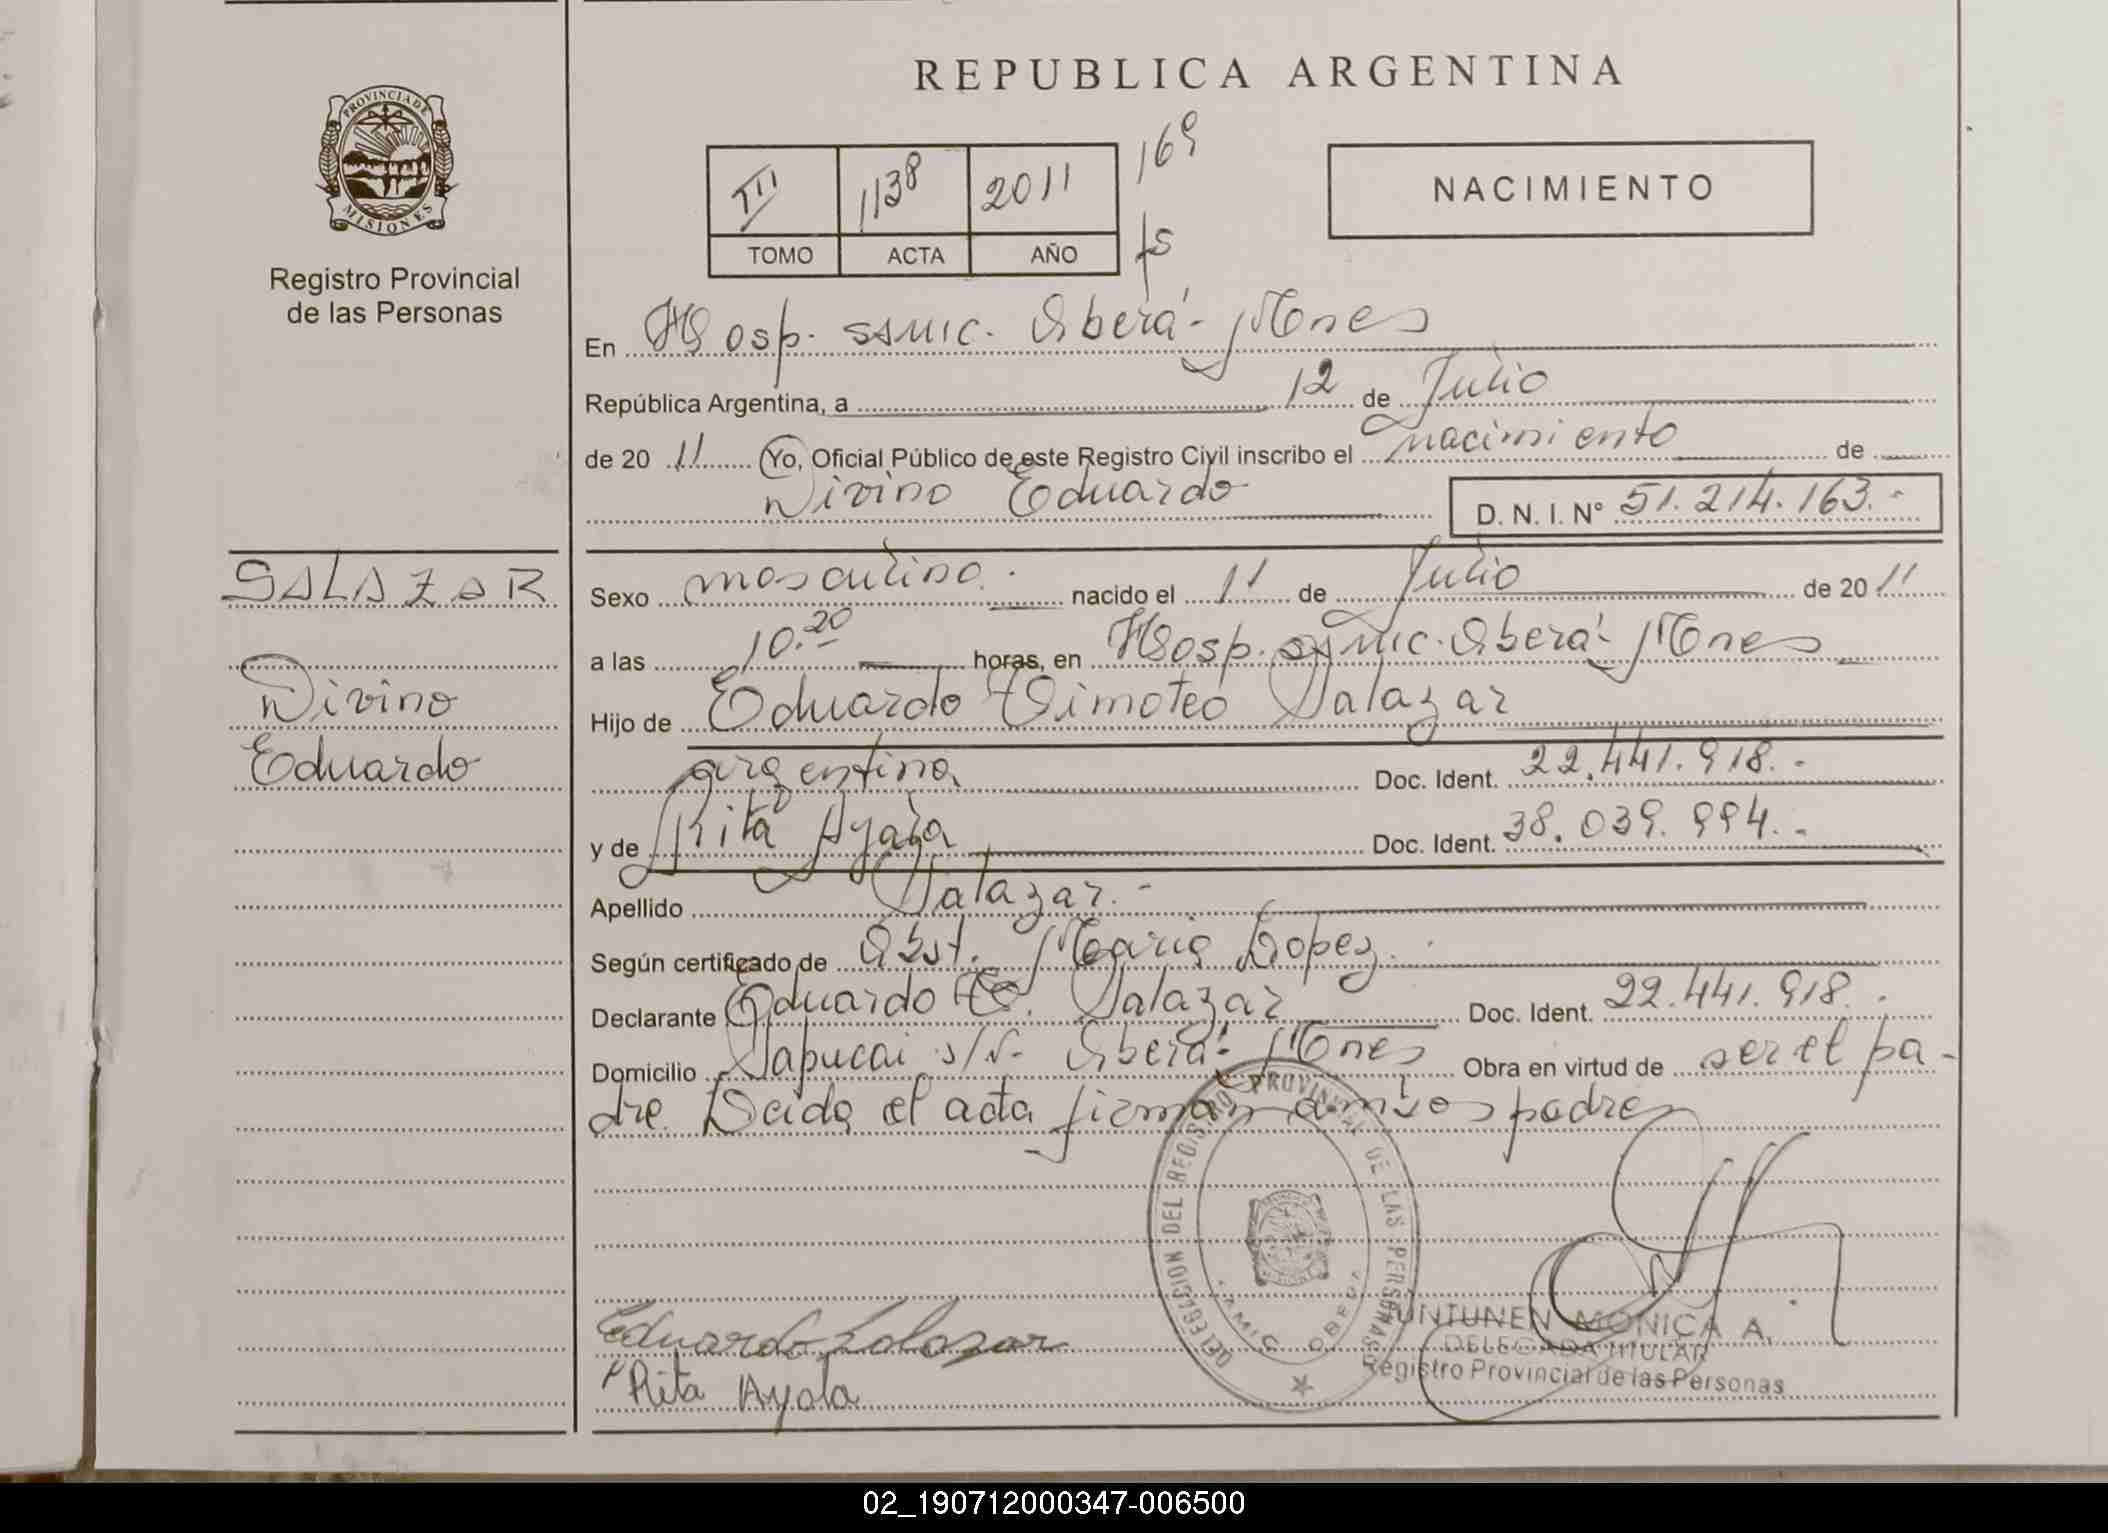 REPUBLICA ARGENTINA
PROVINCIA DE
MISIONES
Registro Provincial
de las Personas
III 1138 2011 169
TOMO ACTA AÑO fs
NACIMIENTO
En Hosp. SAMIC. Oberá - Mnes
República Argentina, a 12 de Julio
de 20 11 Yo, Oficial Público de este Registro Civil inscribo el nacimiento de
Divino Eduardo D. N. I. N° 51.214.163.-
SALAZAR
Divino
Eduardo
Sexo masculino.- nacido el 11 de Julio de 20 11
a las 10.20 horas, en Hosp. SAMIC. Oberá - Mnes
Hijo de Eduardo Timoteo Salazar
argentina Doc. Ident. 22.441.918.-
y de Rita Ayala Doc. Ident. 38.039.994.-
Apellido Salazar.-
Según certificado de Obst. Maria Lopez.
Declarante Eduardo T. Salazar Doc. Ident. 22.441.918.-
Domicilio Sapucai s/N- Oberá - Mnes Obra en virtud de ser el pa-
dre. Leida el acta firman ambos padres
DELEGACION DEL REGISTRO PROVINCIAL DE LAS PERSONAS
SAMIC OBERA
Eduardo Salazar
Rita Ayala
UNTUNEN MONICA A.
DELEGADA TITULAR
Registro Provincial de las Personas
02_190712000347-006500